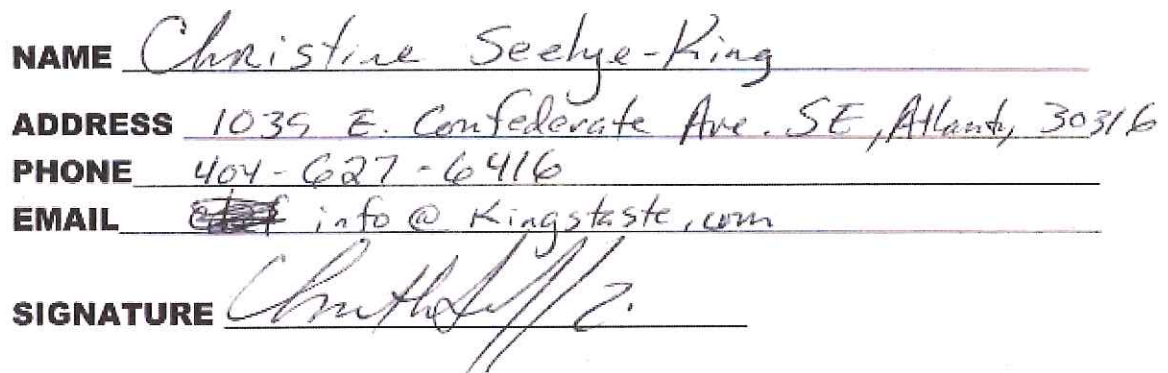 NAME Christine Seelye-King
ADDRESS 1035 E. Confederate Ave. SE, Atlanta, 30316
PHONE 404-627-6416
EMAIL info@Kingstaste.com
SIGNATURE